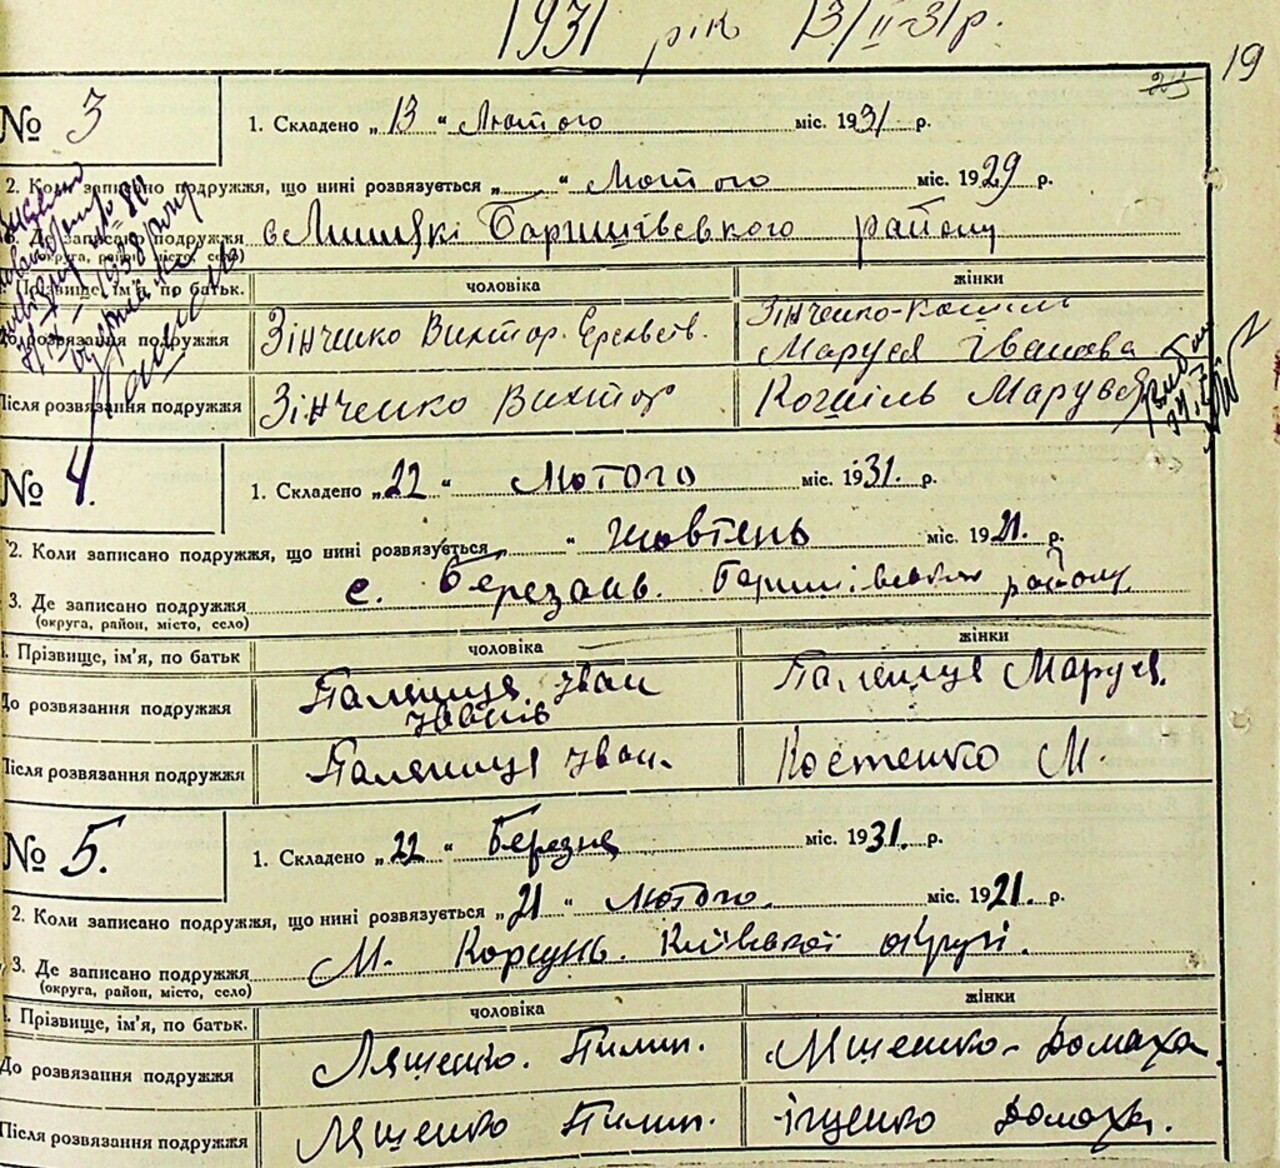 1931 рік 13/II-31р.
19
№ 3
1. Складено „13“ Лютого міс. 1931 р.
2. Коли записано подружжя, що нині розвязується „ “ Лютого міс. 1929 р.
3. Де записано подружжя в Баришівського району
(округа, район, місто, село)
4. Прізвище, ім'я, по батьк. чоловіка жінки
До розвязання подружжя Зінченко Виктор Зінченко-Кошіль
Маруся Іванова
Після розвязання подружжя Зінченко Виктор Кошіль Маруся
№ 4.
1. Складено „22“ Лютого міс. 1931. р.
2. Коли записано подружжя, що нині розвязується „ “ жовтень міс. 1921. р.
3. Де записано подружжя с. Березань. Баришівського району
(округа, район, місто, село)
4. Прізвище, ім'я, по батьк чоловіка жінки
До розвязання подружжя Паляниця Іван Паляниця Маруся.
Іванів
Після розвязання подружжя Паляниця Іван. Костенко М.
№ 5.
1. Складено „22“ Березня міс. 1931. р.
2. Коли записано подружжя, що нині розвязується „21“ Лютого. міс. 1921. р.
3. Де записано подружжя М. Корсунь. Київської округі.
(округа, район, місто, село)
4. Прізвище, ім'я, по батьк. чоловіка жінки
До розвязання подружжя Лященко. Пилип. Лященко-Домаха.
Після розвязання подружжя Лященко Пилип. Іщенко Домаха.